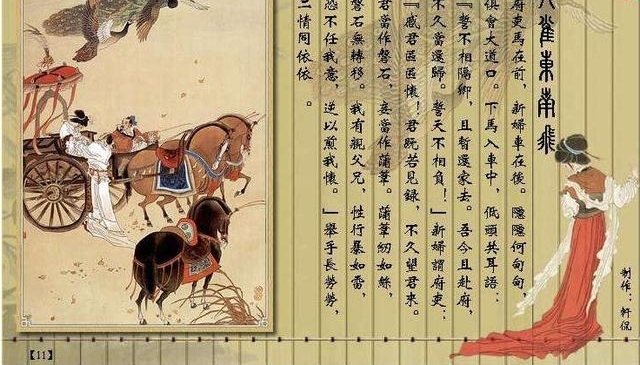 雀東南飛
府吏馬在前，新婦車在後。隱隱何甸甸，
俱會大道口。下馬入車中，低頭共耳語：
『誓不相隔卿，且暫還家去。吾今且赴府，
不久當還歸。誓天不相負！』新婦謂府吏：
『感君區區懷！君既若見録，不久望君來。
君當作磐石，妾當作蒲葦。蒲葦紉如絲，
磐石無轉移。我有親父兄，性行暴如雷，
恐不任我意，逆以煎我懷。』舉手長勞勞，
二情同依依。
制作：軒侃
【11】